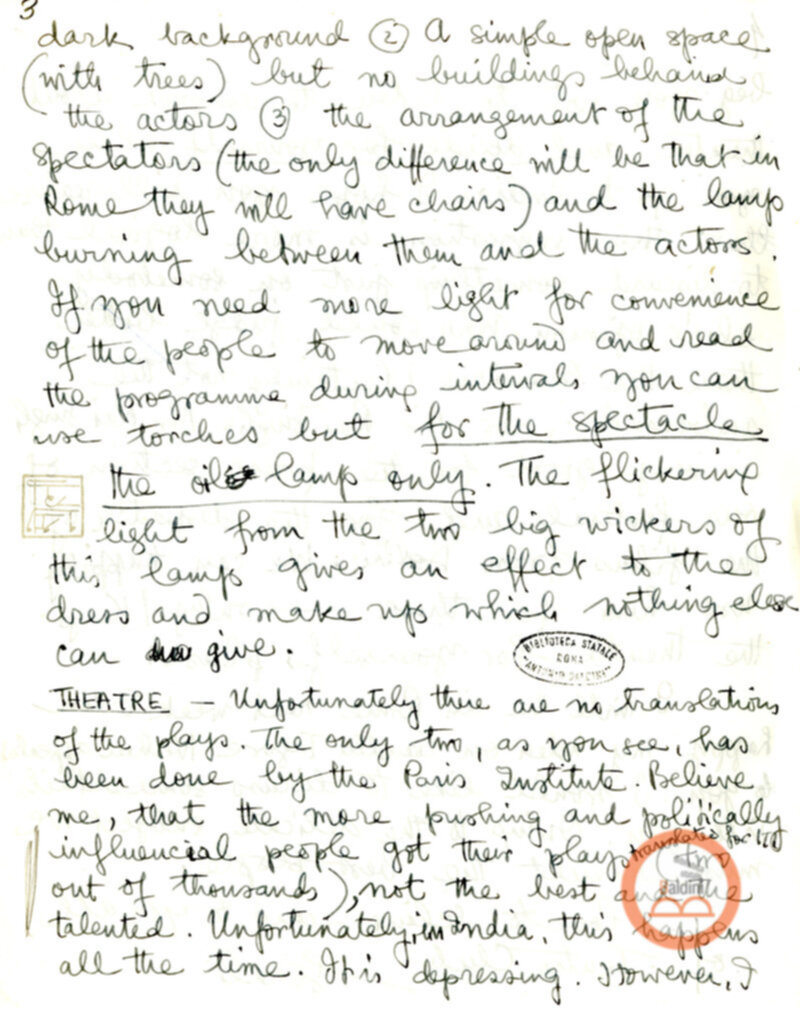 3
dark background ② A simple open space
(with trees) but no buildings behand
the actors ③ the arrangement of the
spectators (the only difference will be that in
Rome they will have chairs) and the lamp
burning between them and the actors.
If you need more light for convenience
of the people to move around and read
the programme during intervals you can
use torches but for the spectacle
the oil lamp only. The flickering
light from the two big wickers of
this lamp gives an effect to the
dress and make up which nothing else
can give.
BIBLIOTECA STATALE
ROMA
THEATRE – Unfortunately there are no translations
of the plays. The only two, as you see, has
been done by the Paris Institute. Believe
me, that the more pushing and politically
influencial people got their plays translated for
out of thousands), not the best and the
talented. Unfortunately, in India, this happens
all the time. It is depressing. However, I